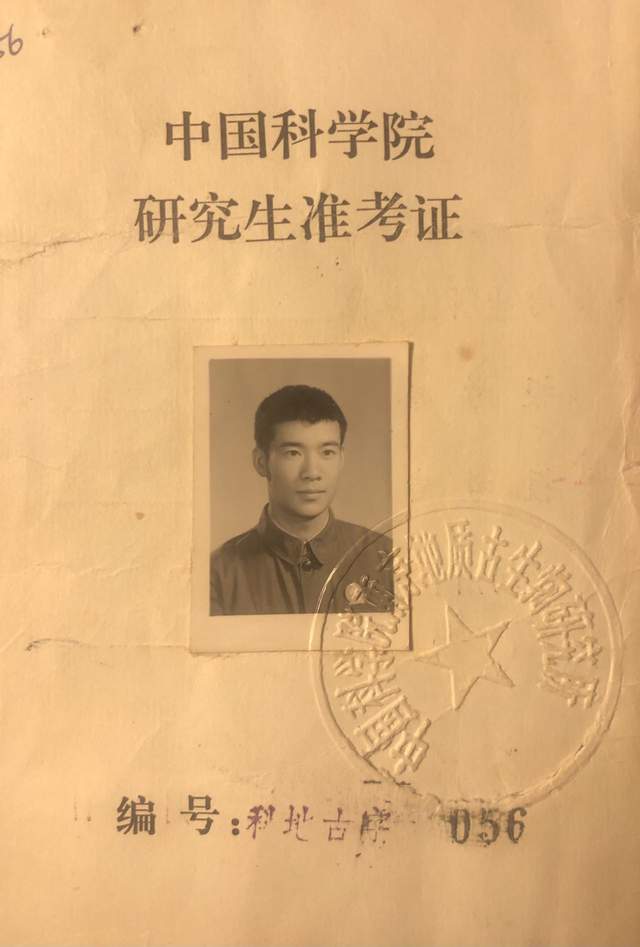 56
中国科学院
研究生准考证
中国科学院南京地质古生物研究所
编号:科地古字 056